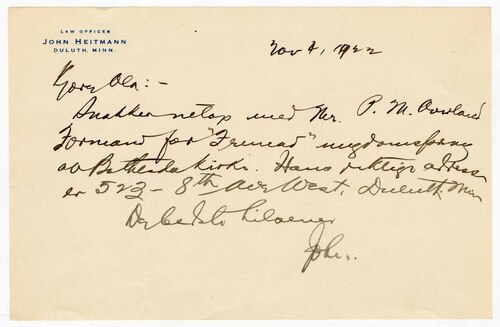 LAW OFFICES
JOHN HEITMANN
DULUTH, MINN.
Nov 4, 1922
Kjære Ola:-
Snakker netop med Mr. P. M.
Formand for "Fremad" ungdomsforening
av Bethesda kirke. Hans riktige adresse
er 523 - 8th Ave West, Duluth, Minn
De bedste hilsener
John.